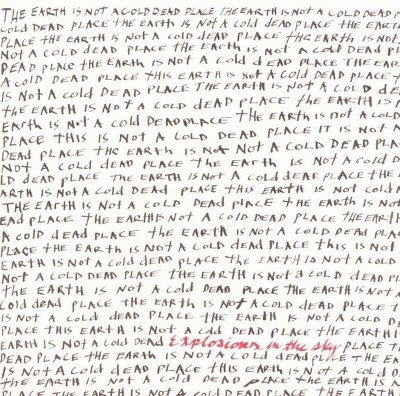 THE EARTH IS NOT A COLD DEAD PLACE THE EARTH IS NOT A COLD DEAD P
COLD DEAD PLACE THE EARTH IS NOT A COLD DEAD PLACE THE EARTH
PLACE THE EARTH IS NOT A COLD DEAD PLACE THE EARTH IS NOT
NOT A COLD DEAD PLACE THE EARTH IS NOT A COLD DEAD PL
DEAD PLACE THE EARTH IS NOT A COLD DEAD PLACE THE EAR
A COLD DEAD PLACE THIS EARTH IS NOT A COLD DEAD PLACE T
IS NOT A COLD DEAD PLACE THE EARTH IS NOT A COLD DE
THE EARTH IS NOT A COLD DEAD PLACE THE EARTH IS N
EARTH IS NOT A COLD DEAD PLACE THE EARTH IS NOT A COLD
PLACE THIS IS NOT A COLD DEAD PLACE IT IS NOT A
DEAD PLACE THE EARTH IS NOT NOT A COLD DEAD PLA
NOT A COLD DEAD PLACE THE EARTH IS NOT A COLD D
LD DEAD PLACE THE EARTH IS NOT A COLD DEAD PLACE THE
ARTH IS NOT A COLD DEAD PLACE THIS EARTH IS NOT COLD
THE EARTH IS NOT A COLD DEAD PLACE THE EARTH IS NOT
EAD PLACE THE EARTH IS NOT A COLD DEAD PLACE THE EARTH
A COLD DEAD PLACE THE EARTH IS NOT A COLD DEAD PLACE
PLACE THE EARTH IS NOT A COLD DEAD PLACE THIS IS NOT
EARTH IS NOT A COLD DEAD PLACE THE EARTH IS NOT A COLD
NOT A COLD DEAD PLACE THE EARTH IS NOT A COLD DEAD PL
THE EARTH IS NOT A COLD DEAD PLACE THE EARTH IS NOT A
COLD DEAD PLACE THE EARTH IS NOT A COLD DEAD PLACE T
IS NOT A COLD DEAD PLACE THE EARTH IS NOT A COLD
PLACE THIS EARTH IS NOT A COLD DEAD PLACE THE EARTH I
EARTH IS NOT A COLD DEAD Explosions in the sky PLACE T
DEAD PLACE THE EARTH IS NOT A COLD DEAD PLACE THE EA
IS NOT A COLD DEAD PLACE THE EARTH IS NOT A COLD D
THE EARTH IS NOT A COLD DEAD PLACE THE EARTH IS N
PLACE THE EARTH IS NOT A COLD DEAD PLACE THE